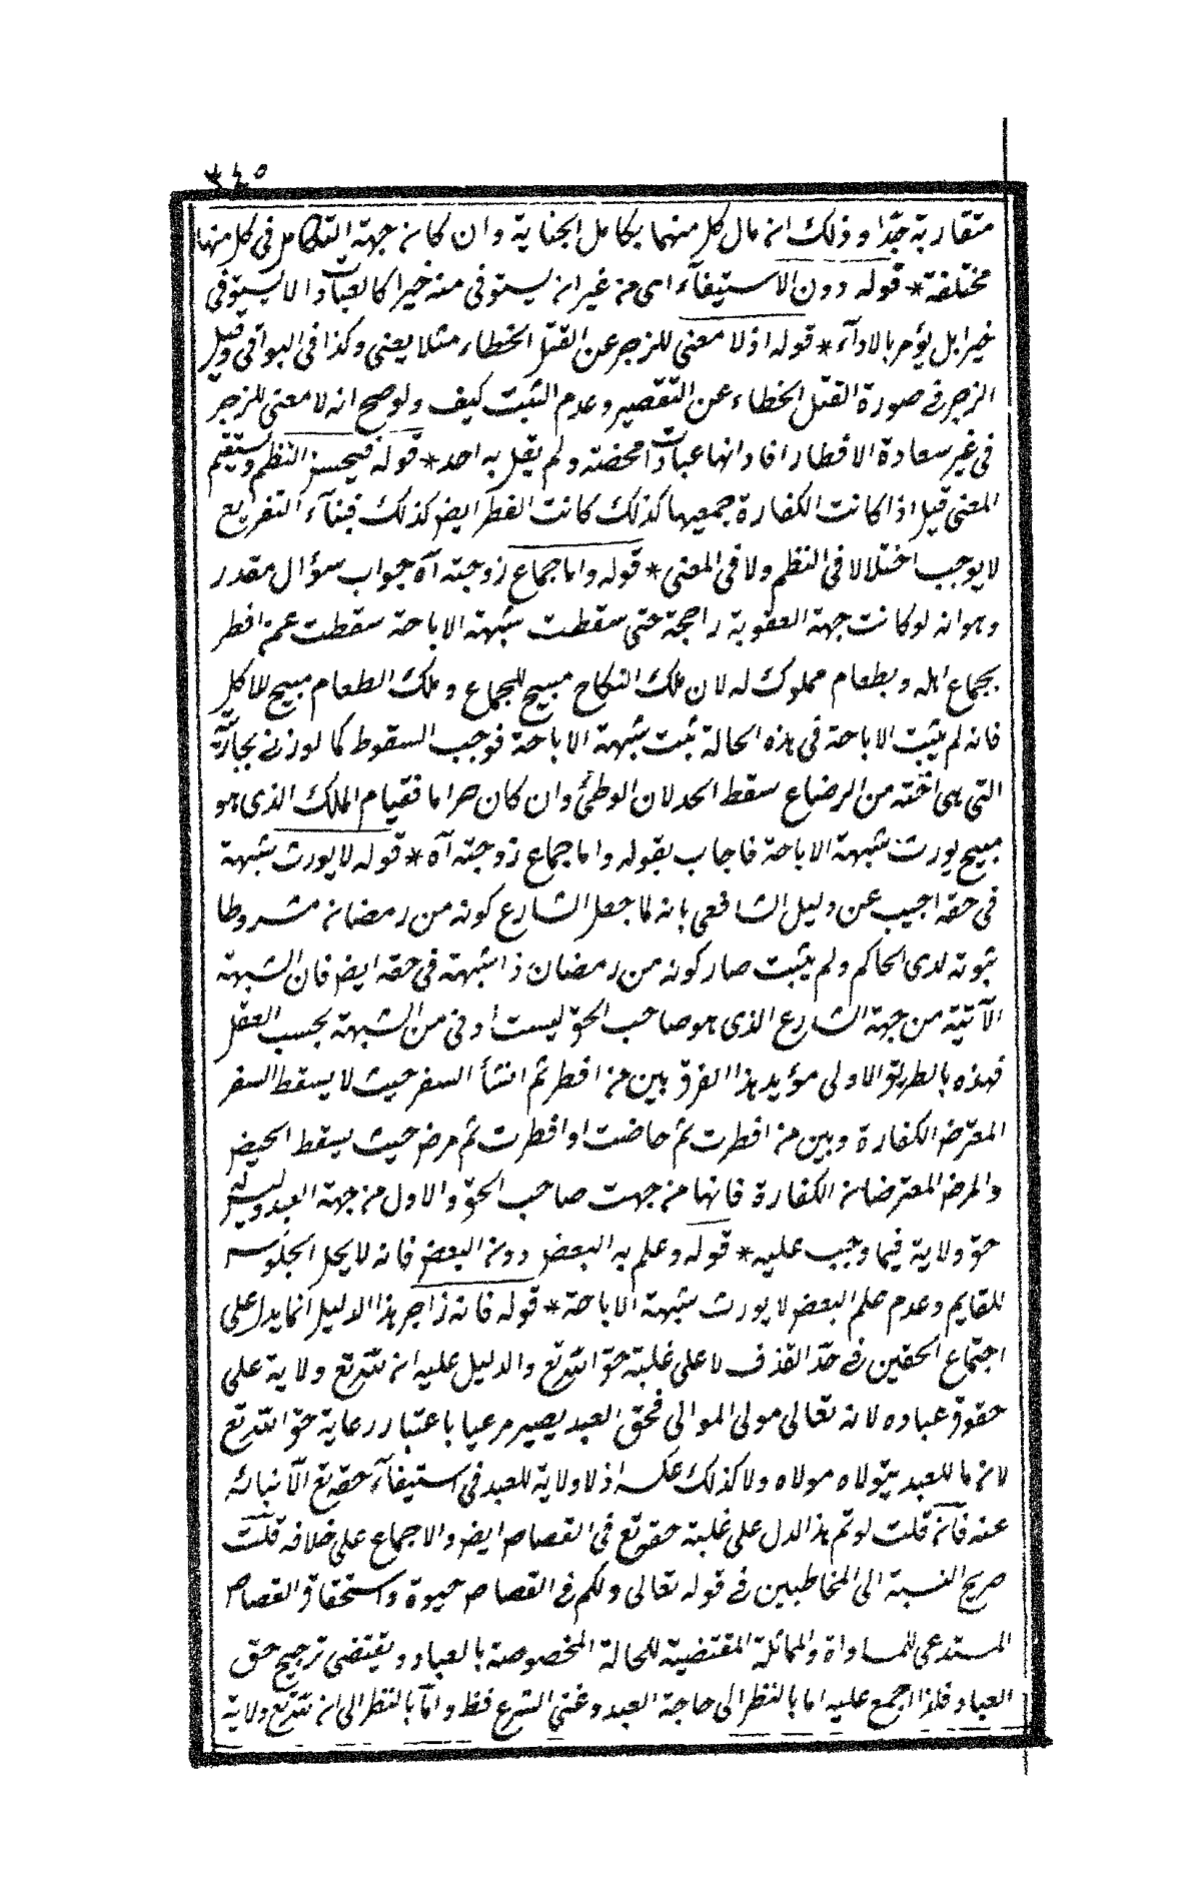 ٣٤٥
متقاربة جدّا وذلك ان مآل كل منهما بكامل الجناية وان كان جهة التكامل فى كل منها
مختلفة * قوله دون الاستيفآء اى من غير ان يستوفى منه خيرا كالعبادات لا يستوفى
خيرا بل يؤمر بالادآء * قوله اذ لا معنى للزجر عن القتل الخطاء مثلا يعنى وكذا فى البواقى وقيل
الزجر فى صورة القتل الخطاء عن التقصير وعدم التثبت كيف ولو صح انه لا معنى للزجر
فى غير الافطار افاد انها عبادات محضة ولم يقل به احد * قوله فيحسن النظم ويستقيم
المعنى قيل اذا كانت الكفارة جميعها كذلك كانت الفطر ايض كذلك فبنآء التفريع
لا يوجب اختلالا فى النظم ولا فى المعنى * قوله واما جماع زوجته آه جواب سؤال مقدر
وهو انه لو كانت جهة العقوبة راجحة حتى سقطت شبهة الاباحة سقطت عمن افطر
بجماع اهله وبطعام مملوك له لان ملك النكاح مبيح للجماع وملك الطعام مبيح للاكل
فانه لم يثبت الاباحة فى هذه الحالة ثبت شبهة الاباحة فوجب السقوط كما لو زنى بجاريته
التى هى اخته من الرضاع سقط الحد لان الوطئ وان كان حراما فقيام الملك الذى هو
مبيح يورث شبهة الاباحة فاجاب بقوله واما جماع زوجته آه * قوله لا يورث شبهة
فى حقه اجيب عن دليل الشافعى بانه لما جعل الشارع كونه من رمضان مشروطا
ثبوته لدى الحاكم ولم يثبت صار كونه من رمضان ذا شبهة فى حقه ايض فان الشبهة
الآتية من جهة الشارع الذى هو صاحب الحق ليست ادنى من الشبهة بحسب العقل
فهذه بالطريق الاولى مؤيد هذا الفرق بين من افطر ثم انشأ السفر حيث لا يسقط السفر
المعترض الكفارة وبين من افطرت ثم حاضت او افطرت ثم مرض حيث يسقط الحيض
والمرض المعترضان الكفارة فانها من جهت صاحب الحق والاول من جهة العبد وليس
حق ولاية فيما وجب عليه * قوله وعلم به البعض دون البعض فانه لا يحل الجلوس
للقايم وعدم علم البعض لا يورث شبهة الاباحة * قوله فانه زاجر هذا الدليل انما يدل على
اجتماع الحقين فى حدّ القذف لا على غلبة حق الله تع والدليل عليه ان لله تع ولاية على
حقوق عباده لانه تعالى مولى الموالى فحق العبد يصير مرعيا باعتبار رعاية حق الله تع
لان ما للعبد يتولاه مولاه ولا كذلك عكسه اذ لا ولاية للعبد فى استيفآء حقه تع الا نيابة
عنه فان قلت لو تم هذا لدل على غلبة حقه تع فى القصاص ايض والاجماع على خلافه قلت
صريح النسبة الى المخاطبين فى قوله تعالى ولكم فى القصاص حيوة واستحقاق القصاص
المستدعى للمساواة والمماثلة المقتضية للحالة المخصوصة بالعباد ويقتضى ترجيح حق
العباد فلذا اجمع عليه اما بالنظر الى حاجة العبد وغنى الشرع فظ واما بالنظر الى ان لله تع ولاية